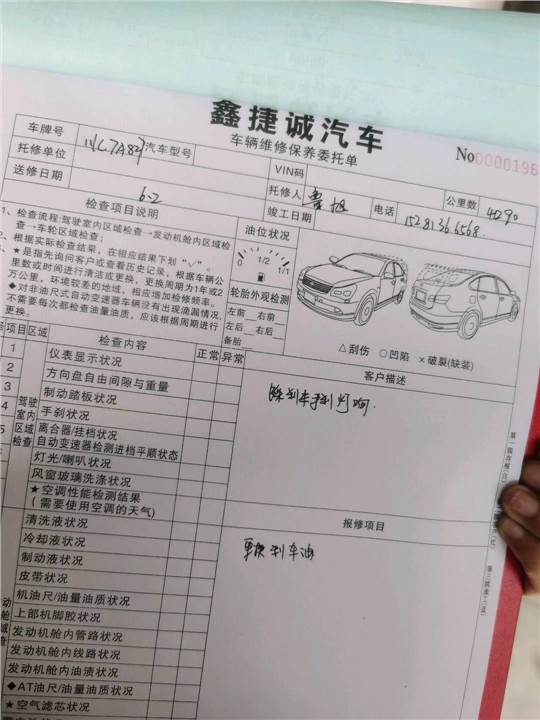 鑫捷诚汽车
车辆维修保养委托单
No0000196
车牌号
托修单位
汽车型号
VIN码
托修人
电话 15281366568
公里数 4290
送修日期 6-2
竣工日期
检查项目说明
1、检查流程:驾驶室内区域检查→发动机舱内区域检
查→车轮区域检查;
、根据实际检查结果,在相应结果下划“√”。
★是指先询问客户或查看历史记录,根据车辆公
里数或时间进行清洁或更换,更换周期为1年或2
万公里,环境较差的地域,相应增加检修频率。
◆对非油尺式自动变速器车辆没有出现滴漏情况,
不需要每次都检查油量油质,应该根据周期进行
更换。
油位状况
0 1/2 1/1
轮胎外观检测
左前 右前
左后 右后
备胎
△刮伤 ○凹陷 ×破裂(缺装)
项目 区域 检查内容 正常 异常
客户描述
1 仪表显示状况
2 方向盘自由间隙与重量
3 制动踏板状况
4 手刹状况
驾驶室内区域检查
离合器/挂档状况
自动变速器检测进档平顺状态
灯光/喇叭状况
风窗玻璃洗涤状况
★空调性能检测结果
(需要使用空调的天气)
报修项目
刹车油
清洗液状况
冷却液状况
制动液状况
皮带状况
机油尺/油量油质状况
上部机脚胶状况
发动机舱内管路状况
发动机舱内线路状况
发动机舱内油渍状况
◆AT油尺/油量油质状况
★空气滤芯状况